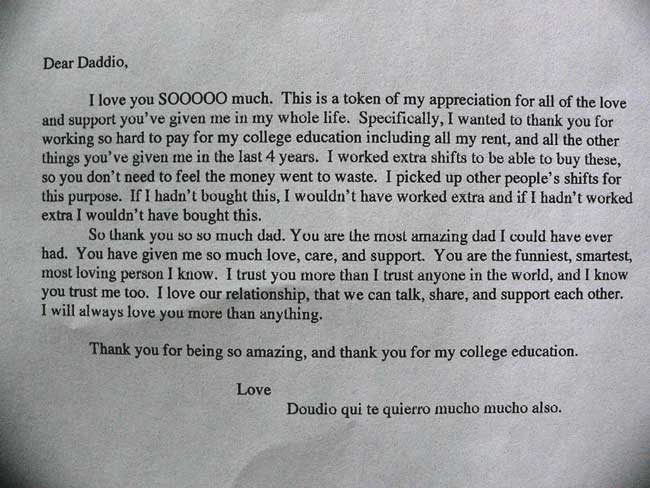 Dear Daddio,
I love you SOOOOO much. This is a token of my appreciation for all of the love
and support you've given me in my whole life. Specifically, I wanted to thank you for
working so hard to pay for my college education including all my rent, and all the other
things you've given me in the last 4 years. I worked extra shifts to be able to buy these,
so you don't need to feel the money went to waste. I picked up other people's shifts for
this purpose. If I hadn't bought this, I wouldn't have worked extra and if I hadn't worked
extra I wouldn't have bought this.
So thank you so so much dad. You are the most amazing dad I could have ever
had. You have given me so much love, care, and support. You are the funniest, smartest,
most loving person I know. I trust you more than I trust anyone in the world, and I know
you trust me too. I love our relationship, that we can talk, share, and support each other.
I will always love you more than anything.
Thank you for being so amazing, and thank you for my college education.
Love
Doudio qui te quierro mucho mucho also.